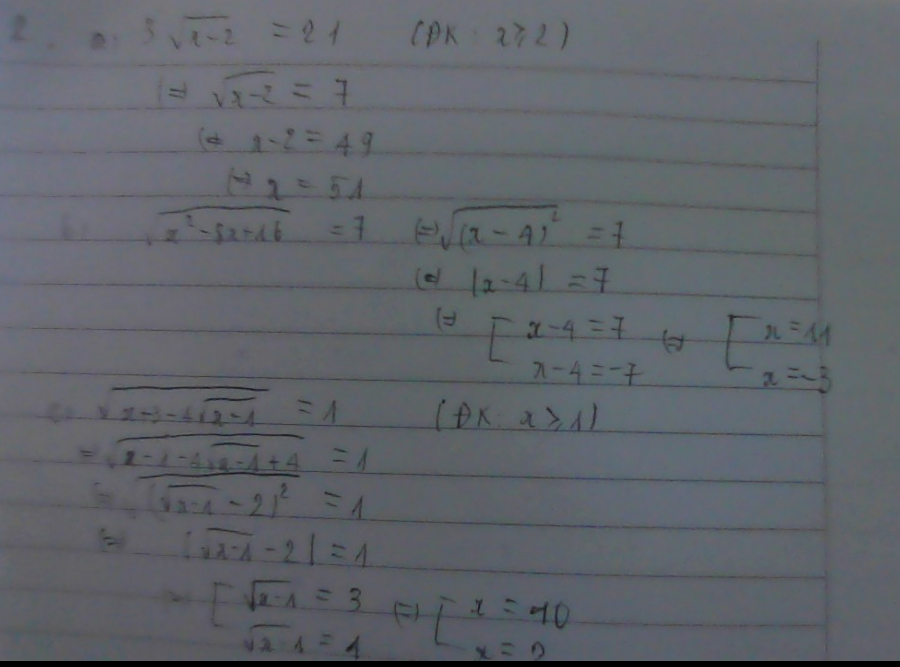 2. a. 3√(x-2) = 21 (ĐK: x ≥ 2)
⇔ √(x-2) = 7
⇔ x-2 = 49
⇔ x = 51
b) √(x²-8x+16) = 7 ⇔ √((x-4)²) = 7
⇔ |x-4| = 7
⇔ [ x-4 = 7 ⇔ [ x = 11
x-4 = -7 x = -3
c) √(x+3-4√(x-1)) = 1 (ĐK: x ≥ 1)
= √(x-1-4√(x-1)+4) = 1
⇔ √((√(x-1)-2)²) = 1
⇔ |√(x-1)-2| = 1
⇔ [ √(x-1) = 3 ⇔ [ x = 10
√(x-1) = 1 x =